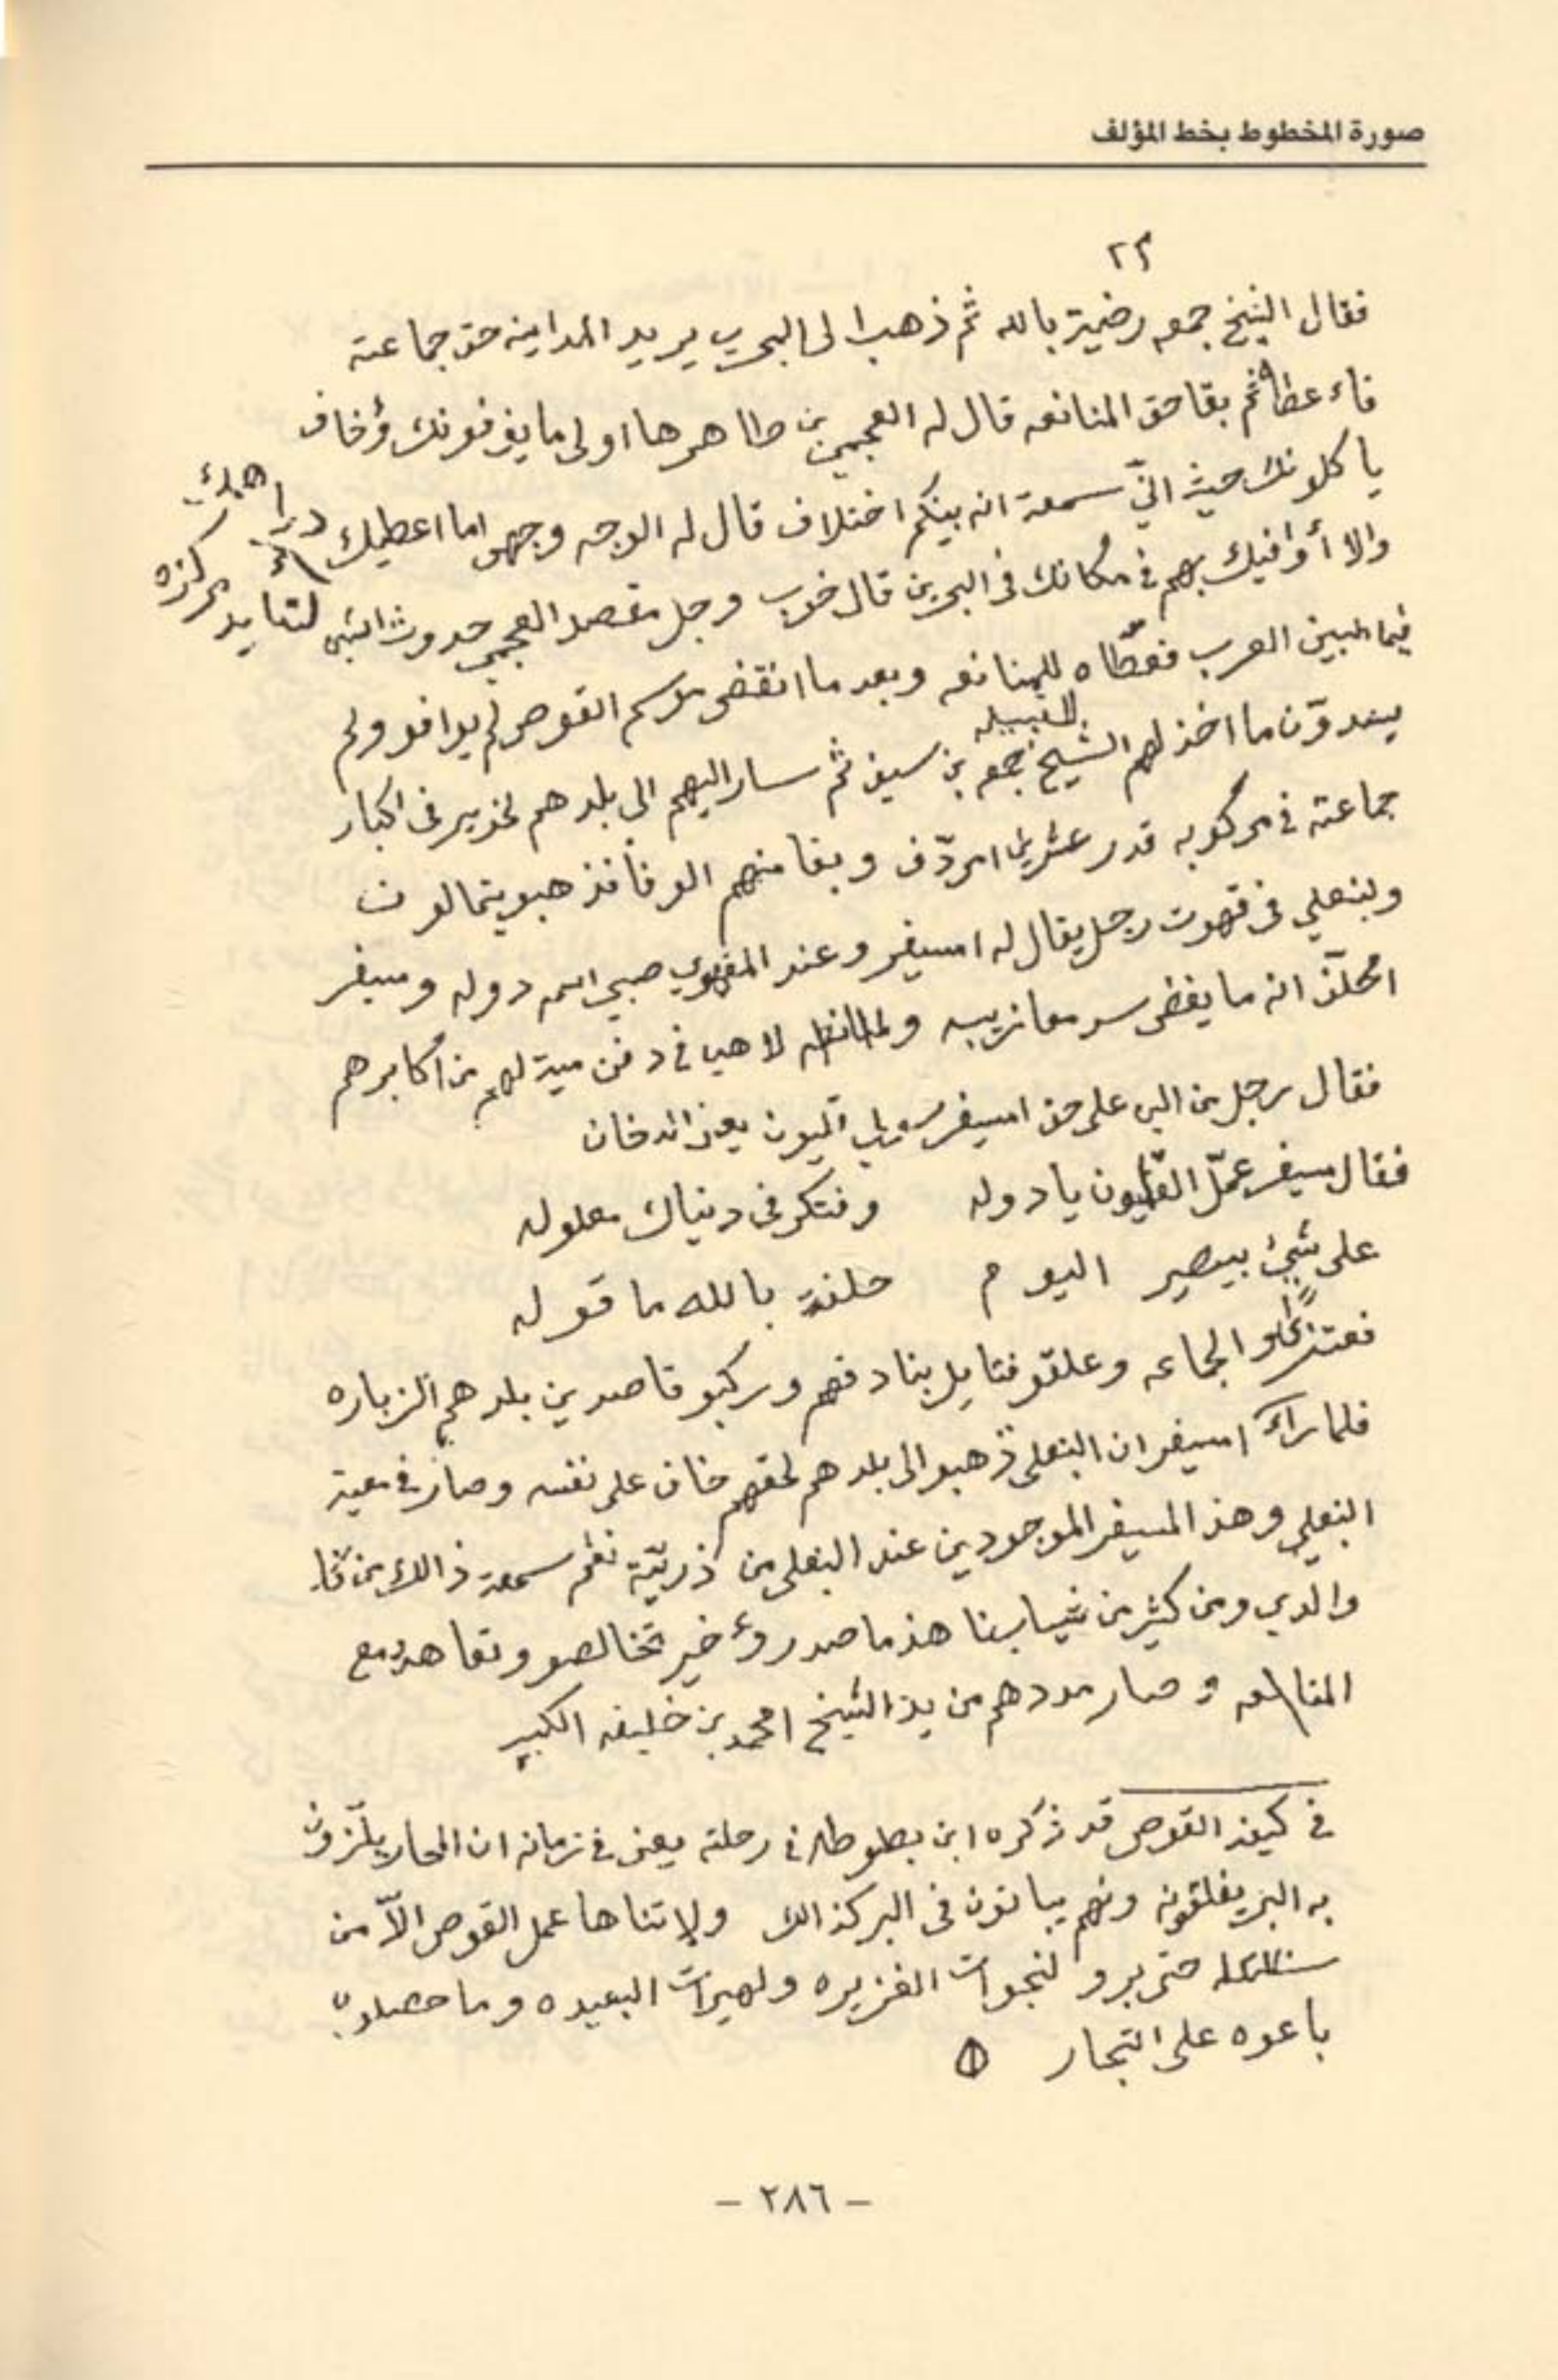 صورة المخطوط بخط المؤلف
٢٣
فقال الشيخ جمعه رضية بالله ثم ذهب الى البحرين يريد المداينه حق جماعته
فاءعطاه ثم بقا حق المنانعه قال له العجمي بن طاهر هااولى ما يوفونك وأخاف
ياكلونك حيث اني سمعة انه بينكم اختلاف قال له الوجه وجهي اما اعطيك دراهمك
والا أوافيك بهم في مكانك في البحرين قال خوب وجل مقصد العجمي حدوث الشي لتايد مركزه
فيما البين العرب فعطاه للمنانعه وبعد ما انقضى موسم الغوص لم يوافو ولم
يسدون ما اخذ لهم الشيخ جمعه بن سيف ثم سار اليهم الى بلدهم فخويير في اكبار
القبيله
جماعته في مركوبه قدر عشرين امردف وبغا منهم الوفا فذهبو يتمالون
وبنعلي في قهوت رجل يقال له امسيفر وعند المقهوي صبي اسمه دوله ومسيفر
امحلف انه ما يفضي سر معازيبه ولا هي في دفن ميت لهم من اكابرهم
فقال رجل من الي على حق امسيفر قليون يعني الدخان
فقال مسيفر عمل القليون يا دوله وفتكر في دنياك معلوله
على شيئ بيصير اليوم حلفة بالله ما قوله
الجماعه وعلقو فتايل بنادقهم وركبو قاصدين بلدهم الزباره
فلما راء امسيفر ان البنعلي ذهبو الى بلدهم لحقهم خاف على نفسه وصار في معية
البنعلي وهذ المسيفر الموجودين عند البنعلي من ذريته نعم سمعة ذالك من
والدي ومن كثير من شيابنا هذ ما صدر وءخير تخالصو وتعاهدو مع
المنانعه وصار مددهم من يد الشيخ امحمد بن خليفه الكبير
في كيفة الغوص قد ذكره ابن بطوطه في رحلته يعني في زمانه ان المحار يلزون
به البر يفلقونه ونهم يباتون في البر كذالك ولا تناها عمل الغوص الاّ من
حتى يرو لنجوات الغزيره ولهيرات البعيده وما حصلو به
باعوه على التجار
– ٢٨٦ –